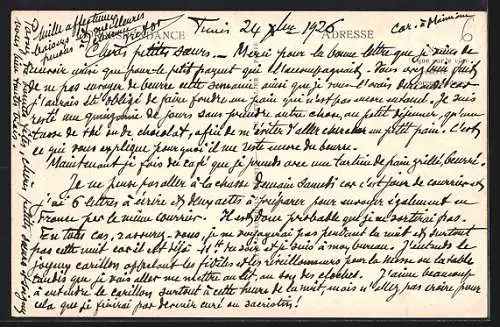 Tunis 24 Xbre 1926
CORRESPONDANCE ADRESSE
Chères petites sœurs. — Merci pour la bonne lettre que je viens de
recevoir ainsi que pour le petit paquet qui l'accompagnait. Vous avez bien fait
de ne pas envoyer de beurre cette semaine ainsi que je vous l'avais car
j'aurais été obligé de faire fondre un pain qui n'est pas encore entamé. Je suis
resté une quinzaine de jours sans prendre autre chose, au petit déjeuner, qu'une
tasse de thé ou de chocolat, afin de m'éviter d'aller chercher un petit pain. C'est
ce qui vous explique pourquoi il me reste encore du beurre.
Maintenant je fais du café que je prends avec une tartine de pain grillé, beurré.
Je ne pense pas aller à la chasse demain samedi car c'est jour de courrier et
j'ai 6 lettres à écrire et deux actes à préparer pour envoyer également en
France par le même courrier. Il est donc probable que je ne sortirai pas.
En tous cas, rassurez-vous, je ne voyagerai pas pendant la nuit et surtout
pas cette nuit car il est déjà 11h du soir et je suis à mon bureau. J'entends le
joyeux carillon appelant les fidèles et les réveillonneurs pour la messe ou la table
tandis que je vais aller me mettre au lit, au son des cloches. J'aime beaucoup
à entendre le carillon surtout à cette heure de la nuit mais n'allez pas croire pour
cela que je finirai par devenir curé ou sacristain!
Mille affectueux
baisers